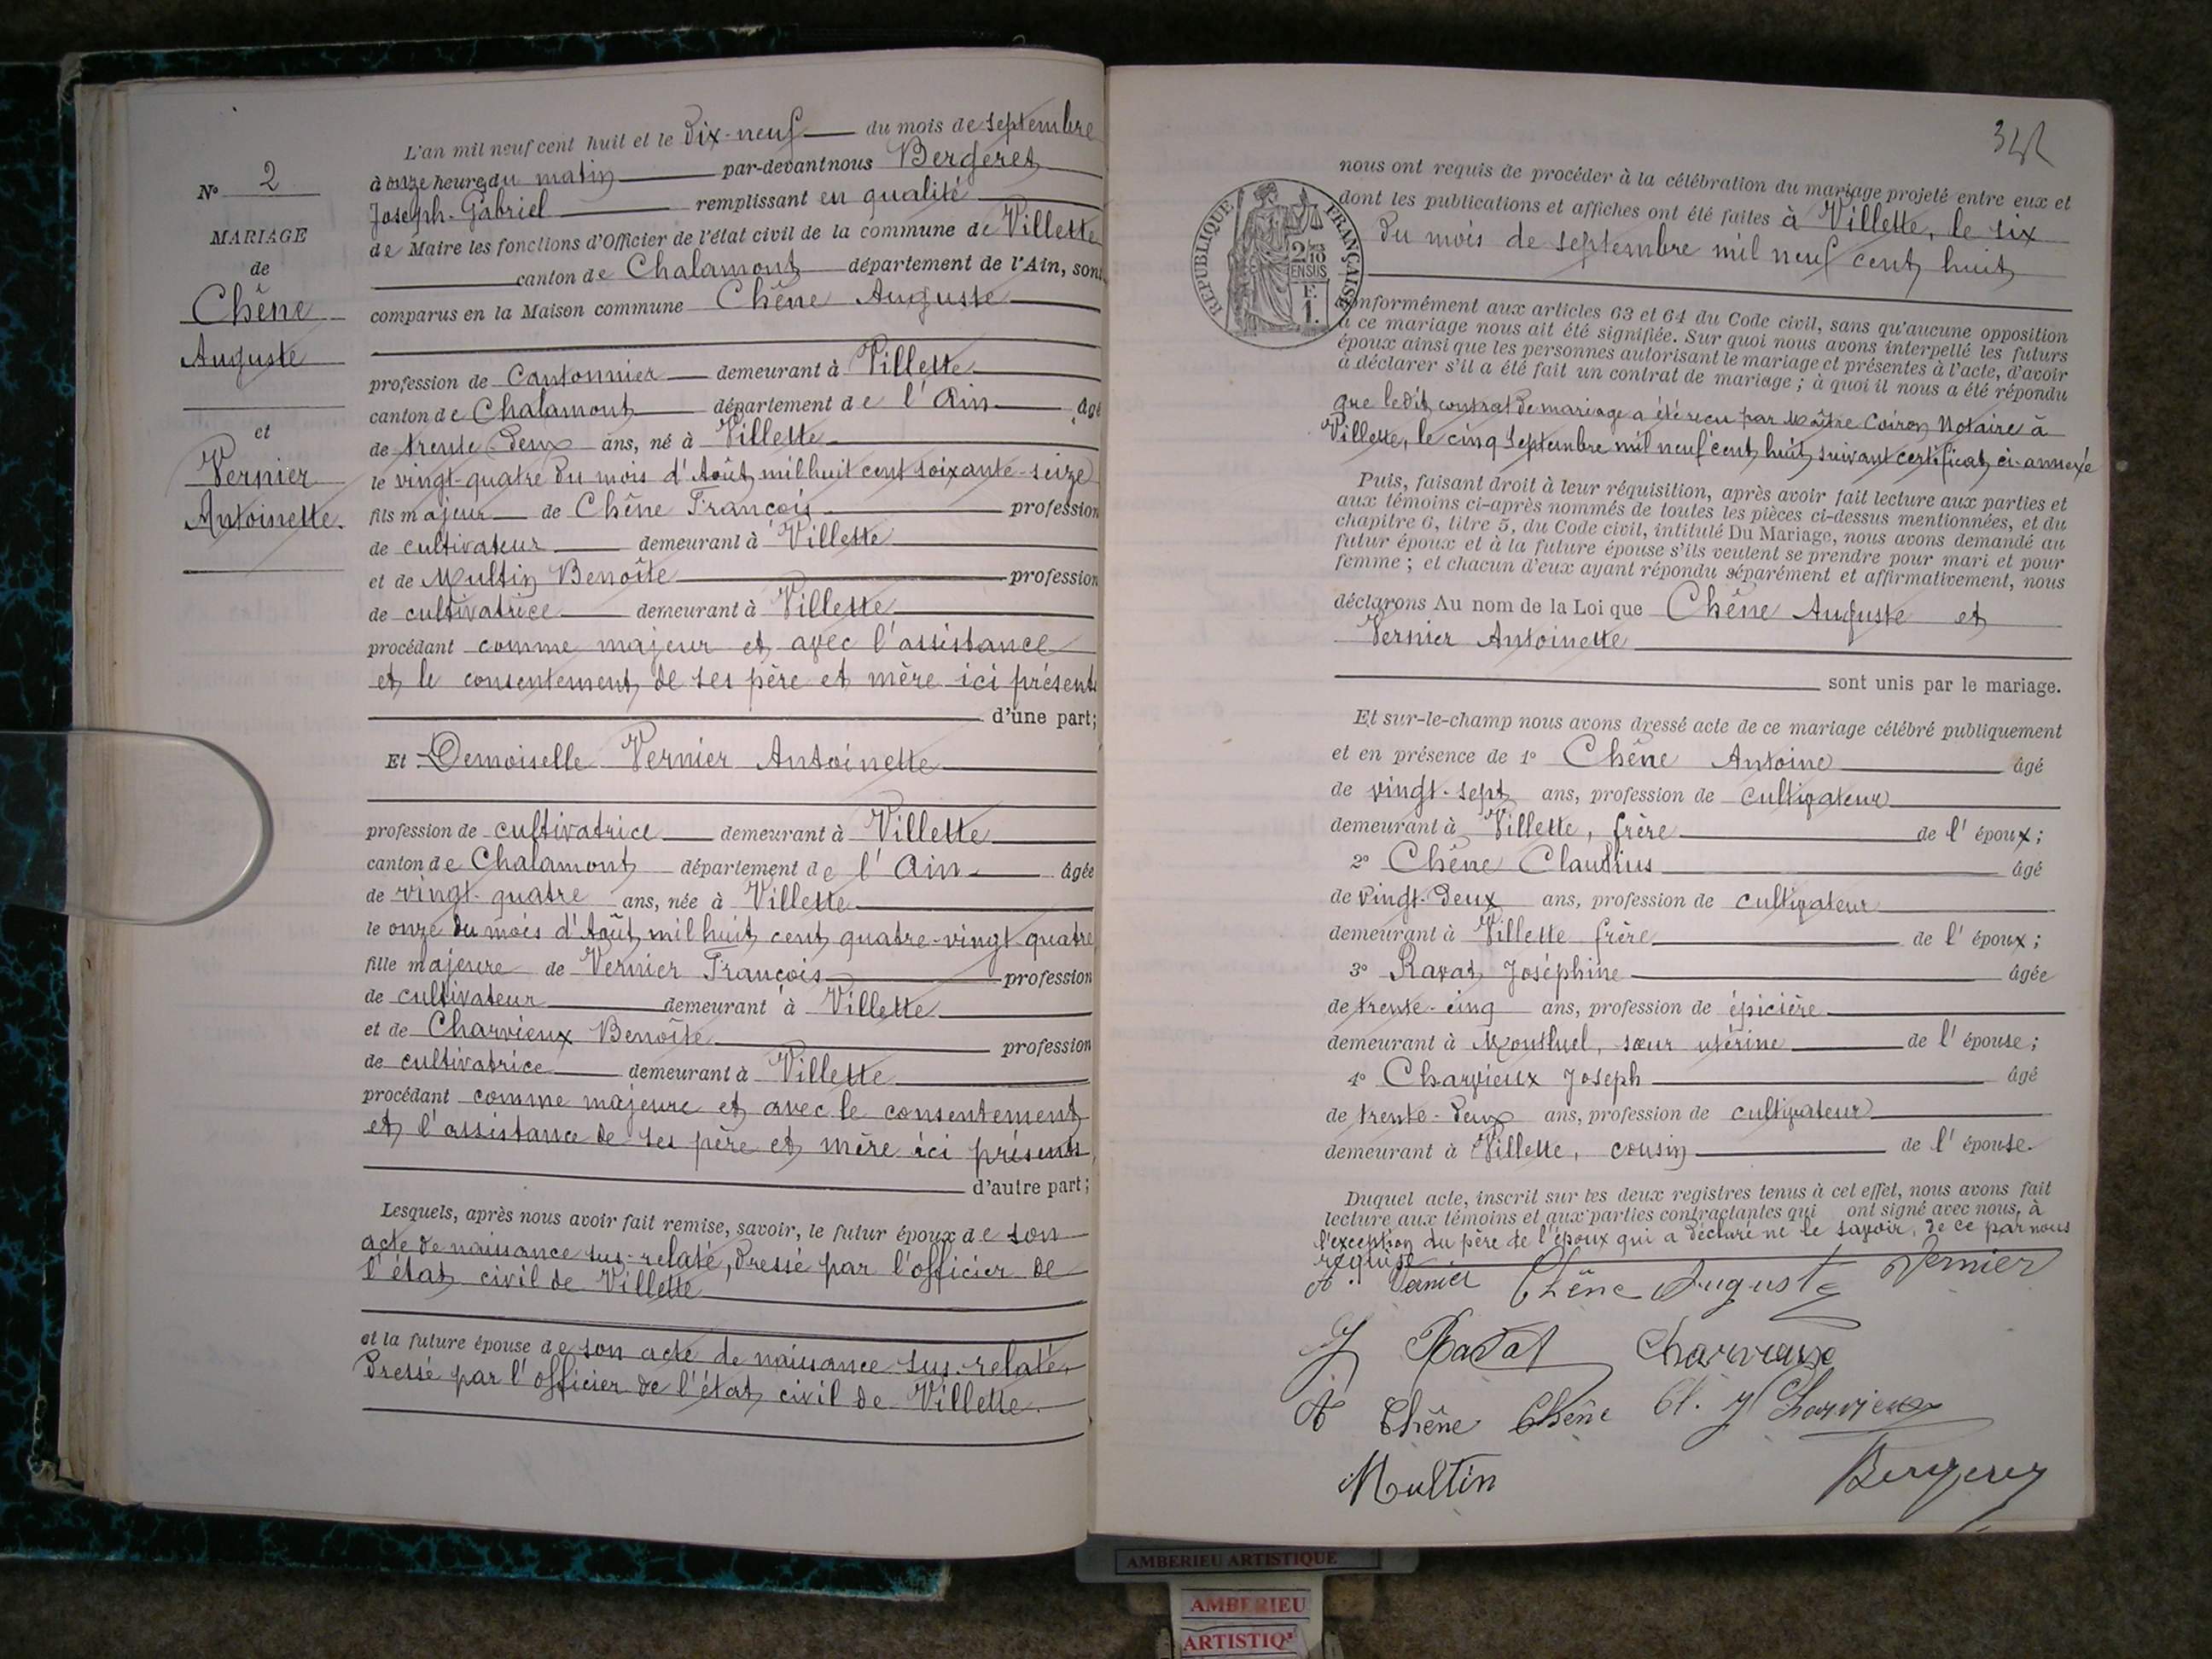 L'an mil neuf cent huit et le Dix-neuf du mois de Septembre
à onze heures du matin par-devant nous Bergeret
Joseph-Gabriel remplissant en qualité
de Maire les fonctions d'Officier de l'état civil de la commune de Villette
canton de Chalamont département de l'Ain, sont
comparus en la Maison commune Chêne Auguste
profession de Cantonnier demeurant à Villette
canton de Chalamont département de l'Ain âgé
de trente-deux ans, né à Villette
le vingt-quatre du mois d'Août mil huit cent soixante-seize
fils majeur de Chêne François profession
de cultivateur demeurant à Villette
et de Multin Benoîte profession
de cultivatrice demeurant à Villette
procédant comme majeur et avec l'assistance
et le consentement de ses père et mère ici présents
d'une part;
Et Demoiselle Vernier Antoinette
profession de cultivatrice demeurant à Villette
canton de Chalamont département de l'Ain âgée
de vingt-quatre ans, née à Villette
le onze du mois d'Août mil huit cent quatre-vingt-quatre
fille majeure de Vernier François profession
de cultivateur demeurant à Villette
et de Charvieux Benoîte profession
de cultivatrice demeurant à Villette
procédant comme majeure et avec le consentement
et l'assistance de ses père et mère ici présents,
d'autre part;
Lesquels, après nous avoir fait remise, savoir, le futur époux de son
acte de naissance sus-relaté, dressé par l'officier de
l'état civil de Villette
et la future épouse de son acte de naissance sus-relaté,
Dressé par l'officier de l'état civil de Villette.
N° 2
MARIAGE
de
Chêne
Auguste
et
Vernier
Antoinette
342
nous ont requis de procéder à la célébration du mariage projeté entre eux et
dont les publications et affiches ont été faites à Villette, le six
du mois de septembre mil neuf cent huit
RÉPUBLIQUE FRANÇAISE
2/10
EN SUS
F.
1.
conformément aux articles 63 et 64 du Code civil, sans qu'aucune opposition
à ce mariage nous ait été signifiée. Sur quoi nous avons interpellé les futurs
époux ainsi que les personnes autorisant le mariage et présentes à l'acte, d'avoir
à déclarer s'il a été fait un contrat de mariage ; à quoi il nous a été répondu
que ledit contrat de mariage a été reçu par Maître Coiron Notaire à
Villette, le cinq Septembre mil neuf cent huit, suivant certificat ci-annexé
Puis, faisant droit à leur réquisition, après avoir fait lecture aux parties et
aux témoins ci-après nommés de toutes les pièces ci-dessus mentionnées, et du
chapitre 6, titre 5, du Code civil, intitulé Du Mariage, nous avons demandé au
futur époux et à la future épouse s'ils veulent se prendre pour mari et pour
femme ; et chacun d'eux ayant répondu séparément et affirmativement, nous
déclarons Au nom de la Loi que Chêne Auguste et
Vernier Antoinette
sont unis par le mariage.
Et sur-le-champ nous avons dressé acte de ce mariage célébré publiquement
et en présence de 1° Chêne Antoine âgé
de vingt-sept ans, profession de cultivateur
demeurant à Villette, frère de l'époux;
2° Chêne Claudius âgé
de vingt-deux ans, profession de cultivateur
demeurant à Villette frère de l'époux;
3° Ravat Joséphine âgée
de trente-cinq ans, profession de épicière
demeurant à Montluel, sœur utérine de l'épouse;
4° Charvieux Joseph âgé
de trente-deux ans, profession de cultivateur
demeurant à Villette, cousin de l'épouse.
Duquel acte, inscrit sur les deux registres tenus à cet effet, nous avons fait
lecture aux témoins et aux parties contractantes qui ont signé avec nous, à
l'exception du père de l'époux qui a déclaré ne le savoir, de ce par nous
requise
A. Vernier Chêne Auguste Vernier
J Ravat Charvieux
A Chêne Chêne Cl. J Charvieux
Multin Bergeret
AMBERIEU ARTISTIQUE
AMBERIEU
ARTISTIQ